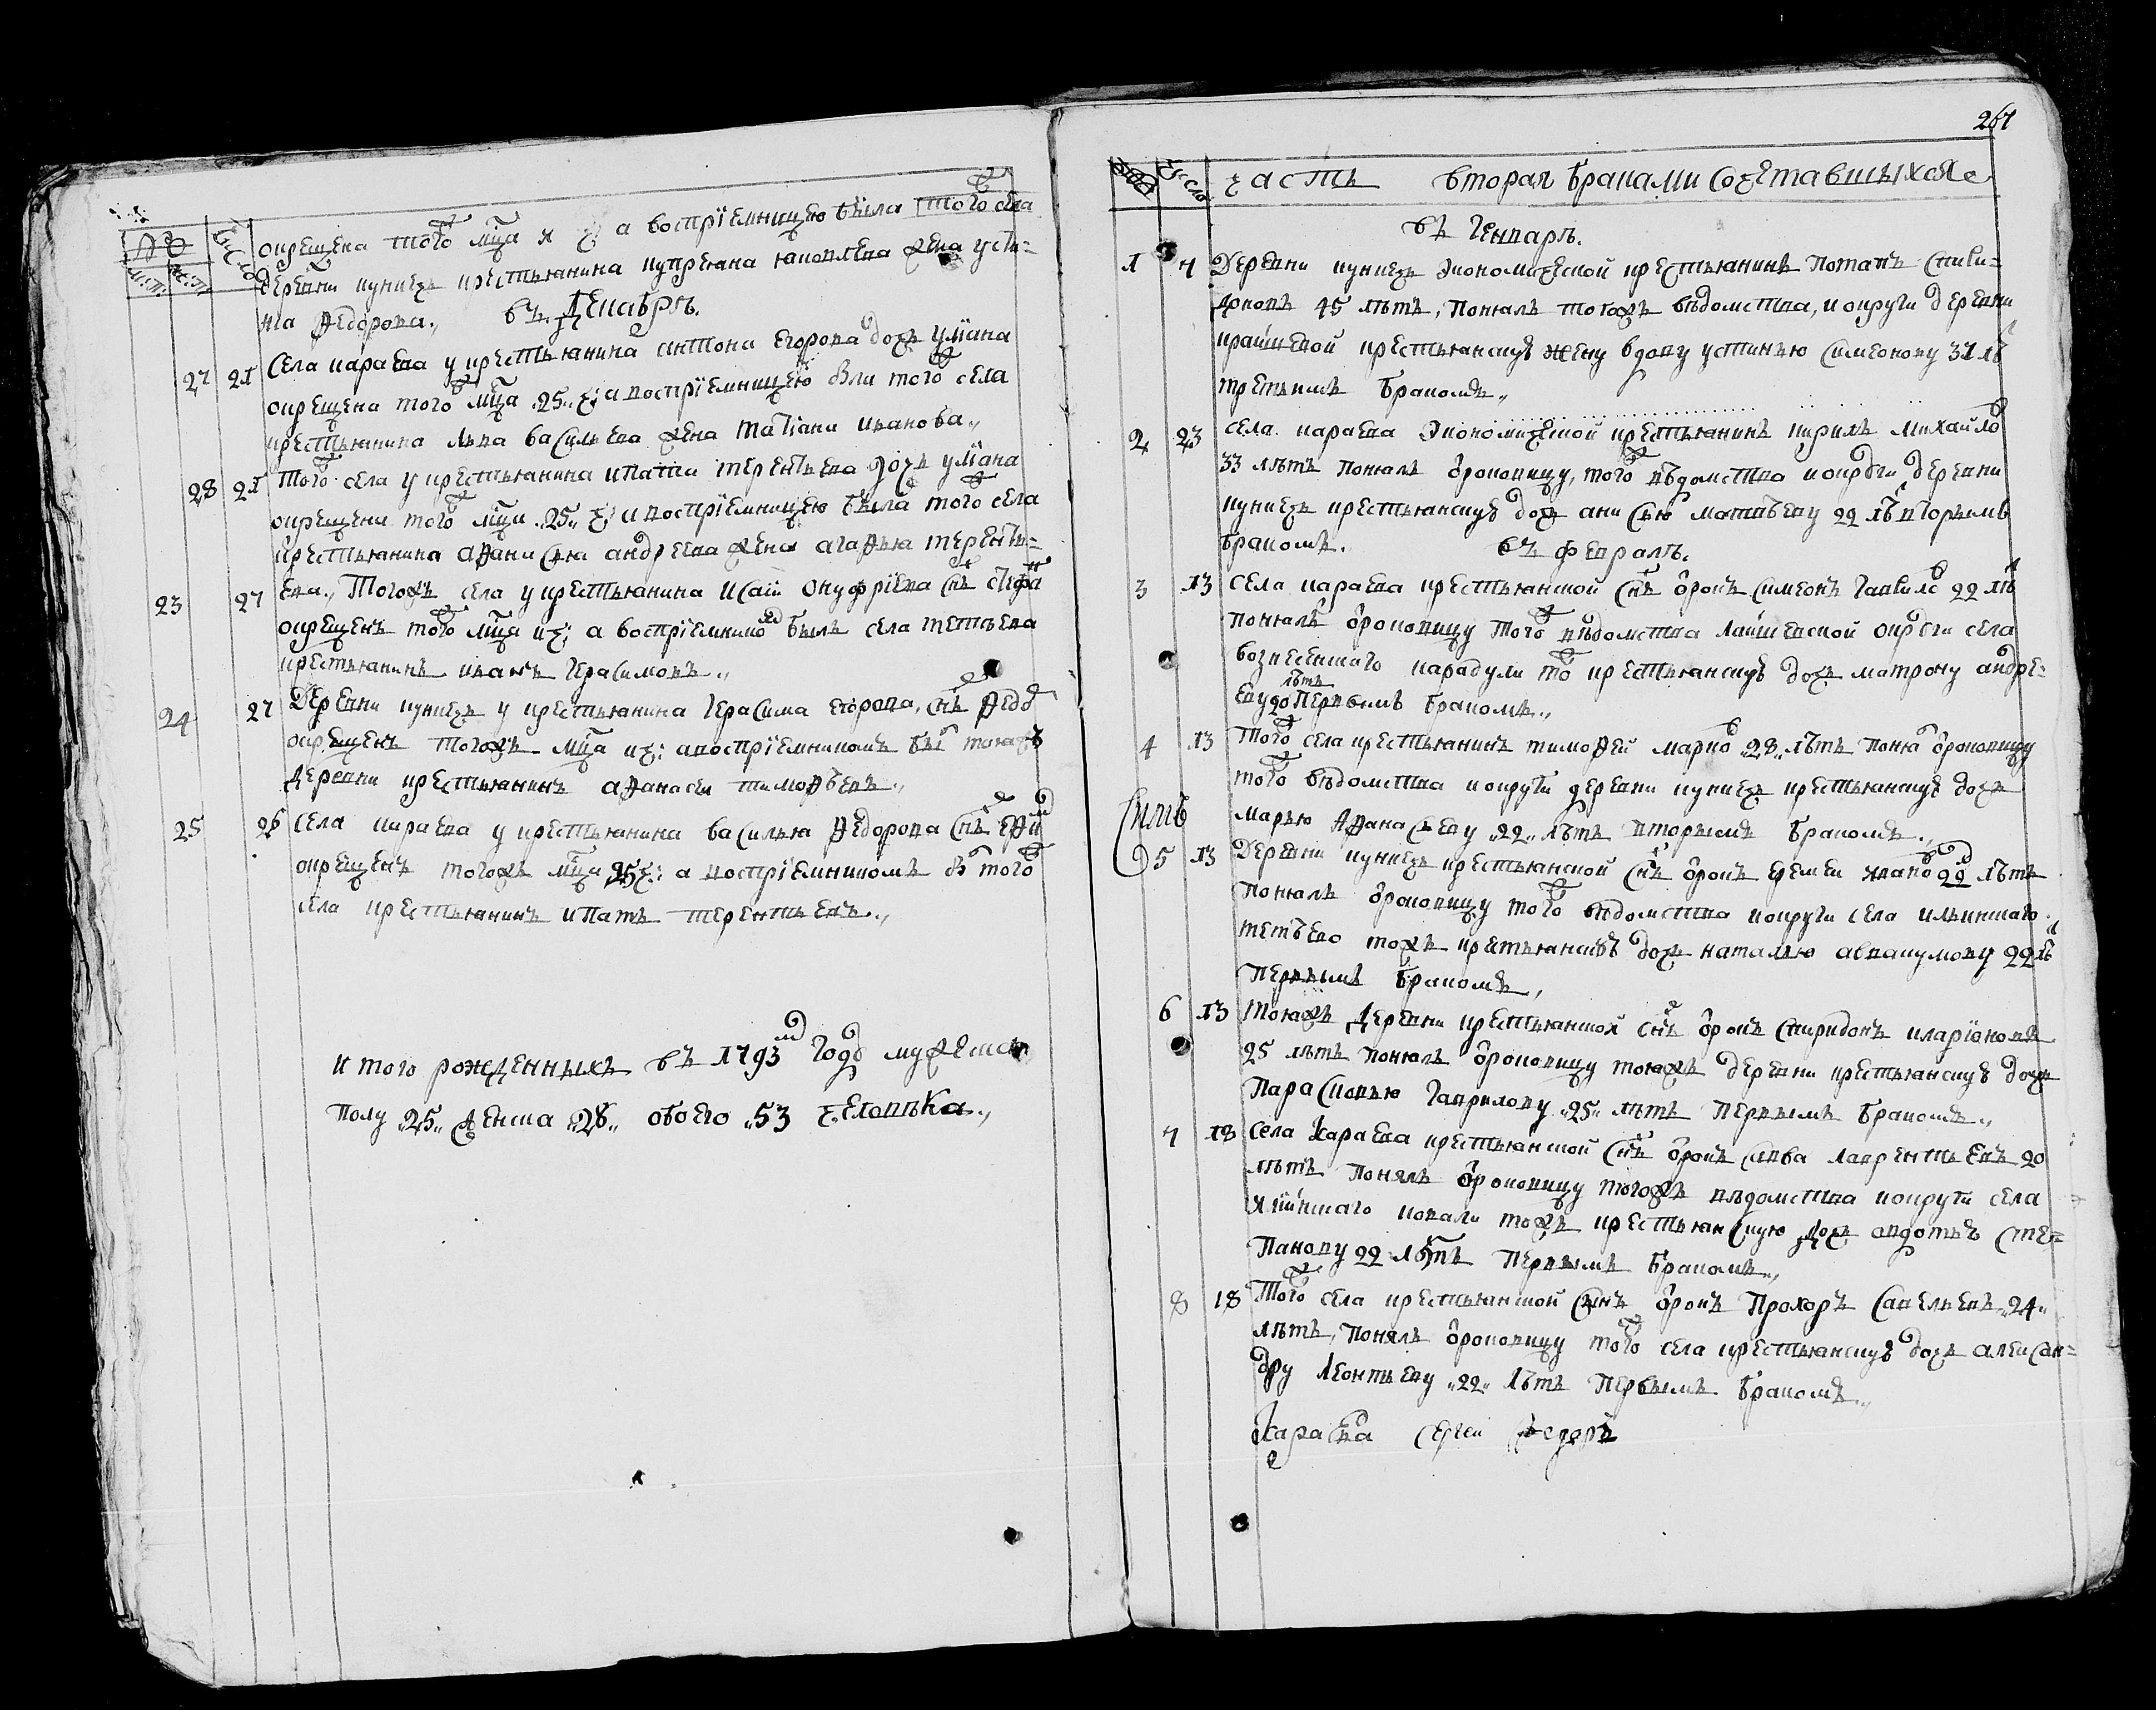 №
число
м:п: ж:п:
окрещена того мца я ч: а воспрiемницею была того села
деревни кунчеъ крестьянина купреяна яковлева жена усти-
нiа федорова.,
въ декабрѣ.
27 21 Села караева у крестьянина антона егорова дочь улiана
окрещена того мца 25 ч: а воспрiемницею была того села
крестьянина льва васильева жена татiана иванова.,
28 21 того села у крестьянина ипатия терентьева дочь улiана
окрещена того мца 25 ч: а воспрiемницею была того села
крестьянина афанасья андреева жена агафья теренть-
ева.,
23 27 Тогожъ села у крестьянина исаiи онуфрiева снъ стефан
окрещенъ того мца ч: а воспрiемником былъ села тетѣева
крестьянинъ иванъ герасимовъ.,
24 27 Деревни кунчеъ у крестьянина герасима егорова, снъ федо
окрещенъ тогожъ мца ч: а воспрiемникомъ бы тояжъ
деревни крестьянинъ афанасеи тимофѣевъ.,
25 26 села караева у крестьянина василья федорова снъ
окрещенъ тогожъ мца ч: а воспрiемникомъ бы того
села крестьянинъ ипатъ терентьевъ.,
итого рожденныхъ въ 1793м году мужеска
полу 25 женска 28 обоего 53 человѣка.,
267
число часть вторая браками сочетавшыхся
въ генварѣ.
1 7 Деревни кунчеъ экономической крестьянинъ потапъ спири-
доновъ 45 лѣтъ, понялъ тогожъ вѣдомства, и округи деревни
крестьянскую жену вдову устинью симеонову 31 лѣ
третьимъ бракомъ.,
2 23 села караева экономической крестьянинъ кирилъ михайло
33 лѣтъ понялъ отроковицу, того вѣдомства и округи деревни
кунчеъ крестьянскую дочь анисью матвѣеву 22 лѣ вторымъ
бракомъ.
въ февралѣ.
3 13 села караева крестьянской снъ отрокъ симеонъ гаврило 22 лѣ
понялъ отроковицу того вѣдомства лаишевской округи села
вознесенскаго карадули то крестьянскую дочь матрону андре-
еву 20 лѣтъ первымъ бракомъ.,
4 13 того села крестьянинъ тимофей марко 28 лѣтъ поня отроковицу
того вѣдомства и округи деревни кунчеъ крестьянскую дочь
марью афанасьеву 22 лѣтъ вторымъ бракомъ.,
5 13 Деревни кунчеъ крестьянской снъ отрокъ еремеи ивано 22 лѣтъ
понялъ отроковицу того вѣдомства и округи села ильинскаго
тетѣево тожъ крестьянскую дочь наталью авакумову 22 лѣ
первымъ бракомъ,
6 13 тояжъ деревни крестьянской снъ отрокъ спиридонъ иларiоновъ
25 лѣтъ понялъ отроковицу тояжъ деревни крестьянскую дочь
парасковью гаврилову 25 лѣтъ первымъ бракомъ.,
7 18 села караева крестьянской снъ отрокъ савва лаврентьевъ 20
лѣтъ понялъ отроковицу тогожъ вѣдомства и округи села
ковали тожъ крестьянскую дочь авдотью сте-
панову 22 лѣтъ первымъ бракомъ.,
8 18 того села крестьянской сынъ отрокъ прохоръ савельевъ 24
лѣтъ, понялъ отроковицу того села крестьянскую дочь алексан-
дру леонтьеву 22 лѣтъ первымъ бракомъ.,
караева сергеи федоръ